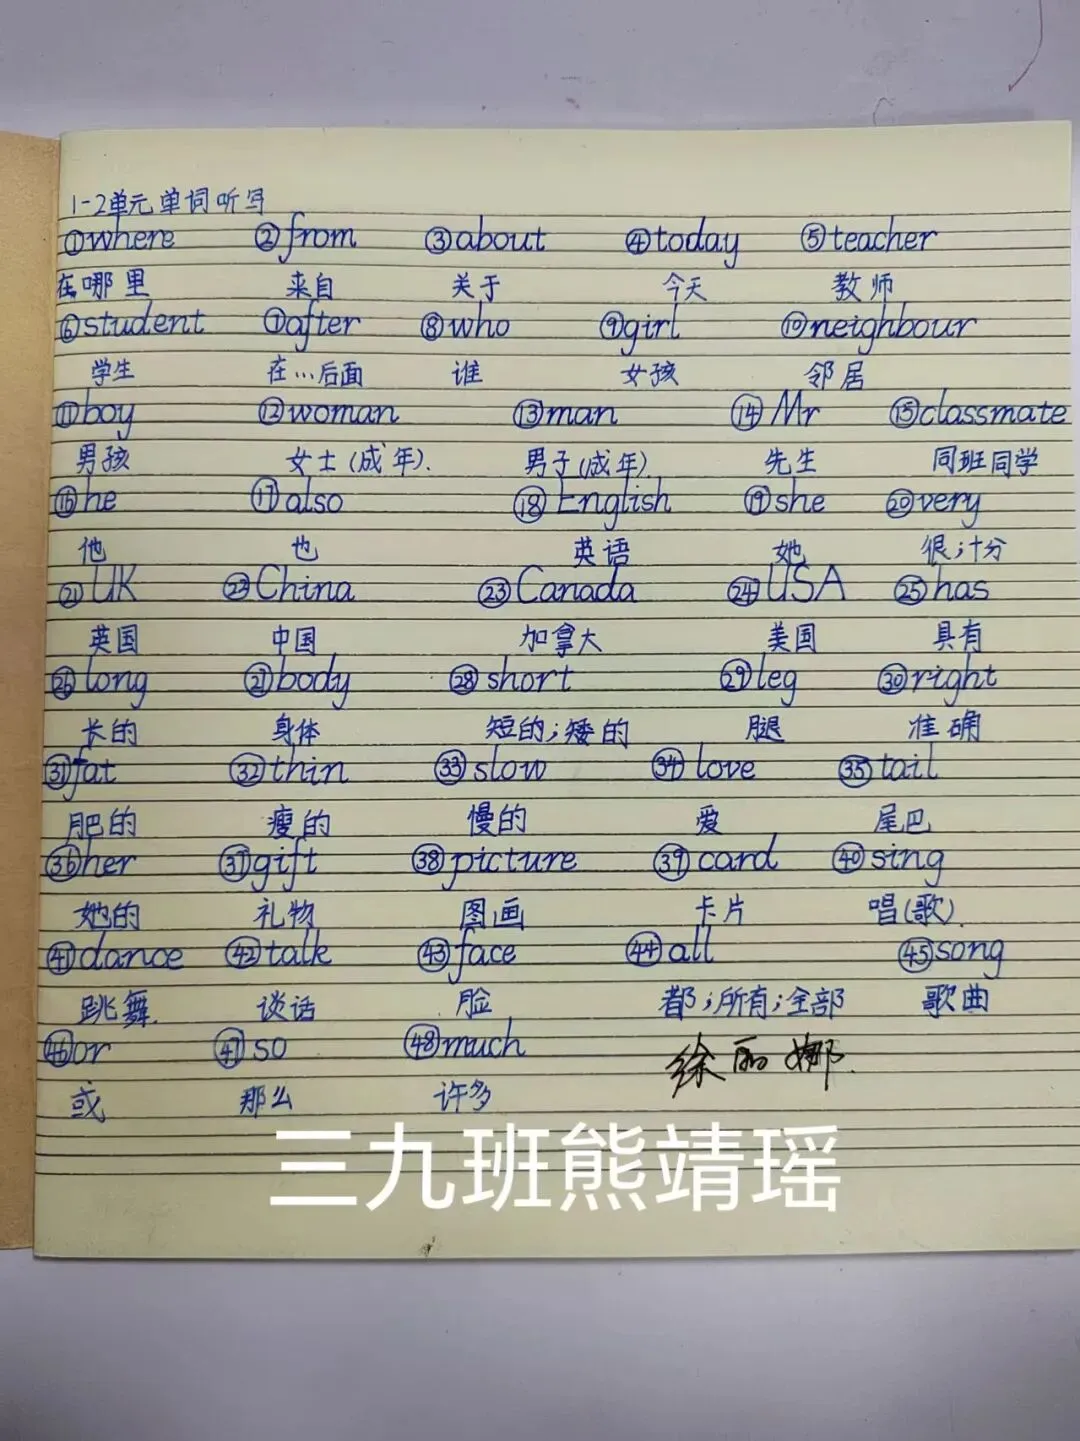 1-2单元单词听写
①where ②from ③about ④today ⑤teacher
在哪里 来自 关于 今天 教师
⑥student ⑦after ⑧who ⑨girl ⑩neighbour
学生 在…后面 谁 女孩 邻居
⑪boy ⑫woman ⑬man ⑭Mr ⑮classmate
男孩 女士(成年). 男子(成年). 先生 同班同学
⑯he ⑰also ⑱English ⑲she ⑳very
他 也 英语 她 很;十分
㉑UK ㉒China ㉓Canada ㉔USA ㉕has
英国 中国 加拿大 美国 具有
㉖long ㉗body ㉘short ㉙leg ㉚right
长的 身体 短的;矮的 腿 准确
㉛fat ㉜thin ㉝slow ㉞love ㉟tail
肥的 瘦的 慢的 爱 尾巴
㊱her ㊲gift ㊳picture ㊴card ㊵sing
她的 礼物 图画 卡片 唱(歌).
㊶dance ㊷talk ㊸face ㊹all ㊺song
跳舞. 谈话 脸 都;所有;全部 歌曲
㊻or ㊼so ㊽much 徐丽娜.
或 那么 许多
三九班熊靖瑶